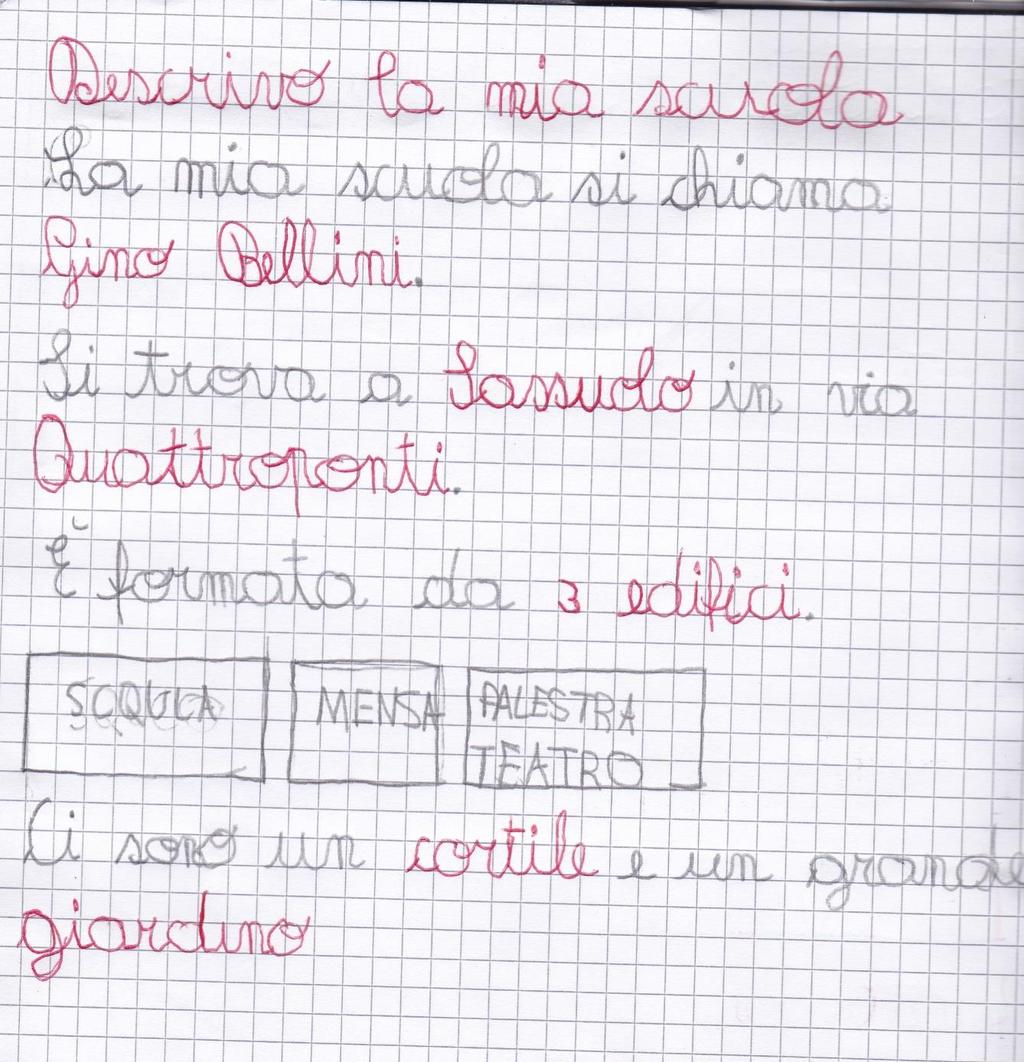 Descrivo la mia scuola
La mia scuola si chiama
Gino Bellini.
Si trova a Sassudo in via
Quattroponti.
È formata da 3 edifici.
SCQUOLA MENSA PALESTRA
TEATRO
Ci sono un cortile e un grande
giardino